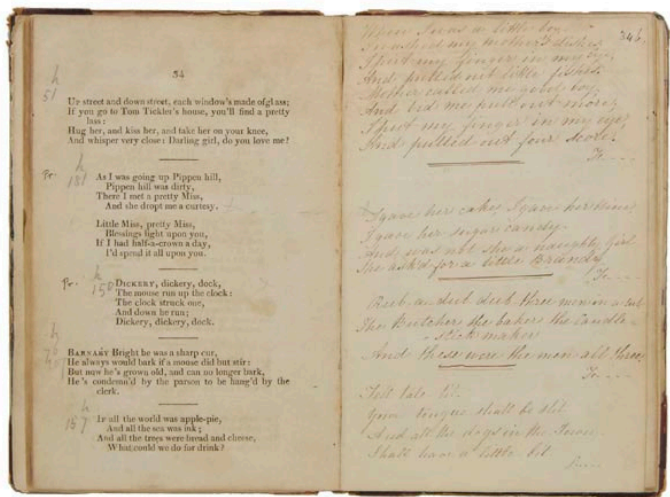 54
h
51
Up street and down street, each window's made of glass;
If you go to Tom Tickler's house, you'll find a pretty
lass:
Hug her, and kiss her, and take her on your knee,
And whisper very close: Darling girl, do you love me?
Pr.
h
181
As I was going up Pippen hill,
Pippen hill was dirty,
There I met a pretty Miss,
And she dropt me a curtesy.
Little Miss, pretty Miss,
Blessings light upon you,
If I had half-a-crown a day,
I'd spend it all upon you.
Pr.
h
150
Dickery, dickery, dock,
The mouse run up the clock:
The clock struck one,
And down he run;
Dickery, dickery, dock.
h
Barnaby Bright he was a sharp cur,
He always would bark if a mouse did but stir:
But now he's grown old, and can no longer bark,
He's condemn'd by the parson to be hang'd by the
clerk.
h
157
If all the world was apple-pie,
And all the sea was ink;
And all the trees were bread and cheese,
What could we do for drink?
When I was a little boy
I washed my mother's dishes
I put my finger in my eye,
And pulled out little fishes.
Mother called me good boy,
And bid me pull out more,
I put my finger in my eye,
And pulled out four score.
I gave her cakes, I gave her wine,
I gave her sugar candy.
And was not she a naughty Girl
She ask'd for a little Brandy.
Rub a dub dub three men in a tub
The Butcher, the baker, the Candle-
stick maker
And these were the men all three.
Tell tale tit.
Your tongue shall be slit
And all the dogs in the Town
Shall have a little bit